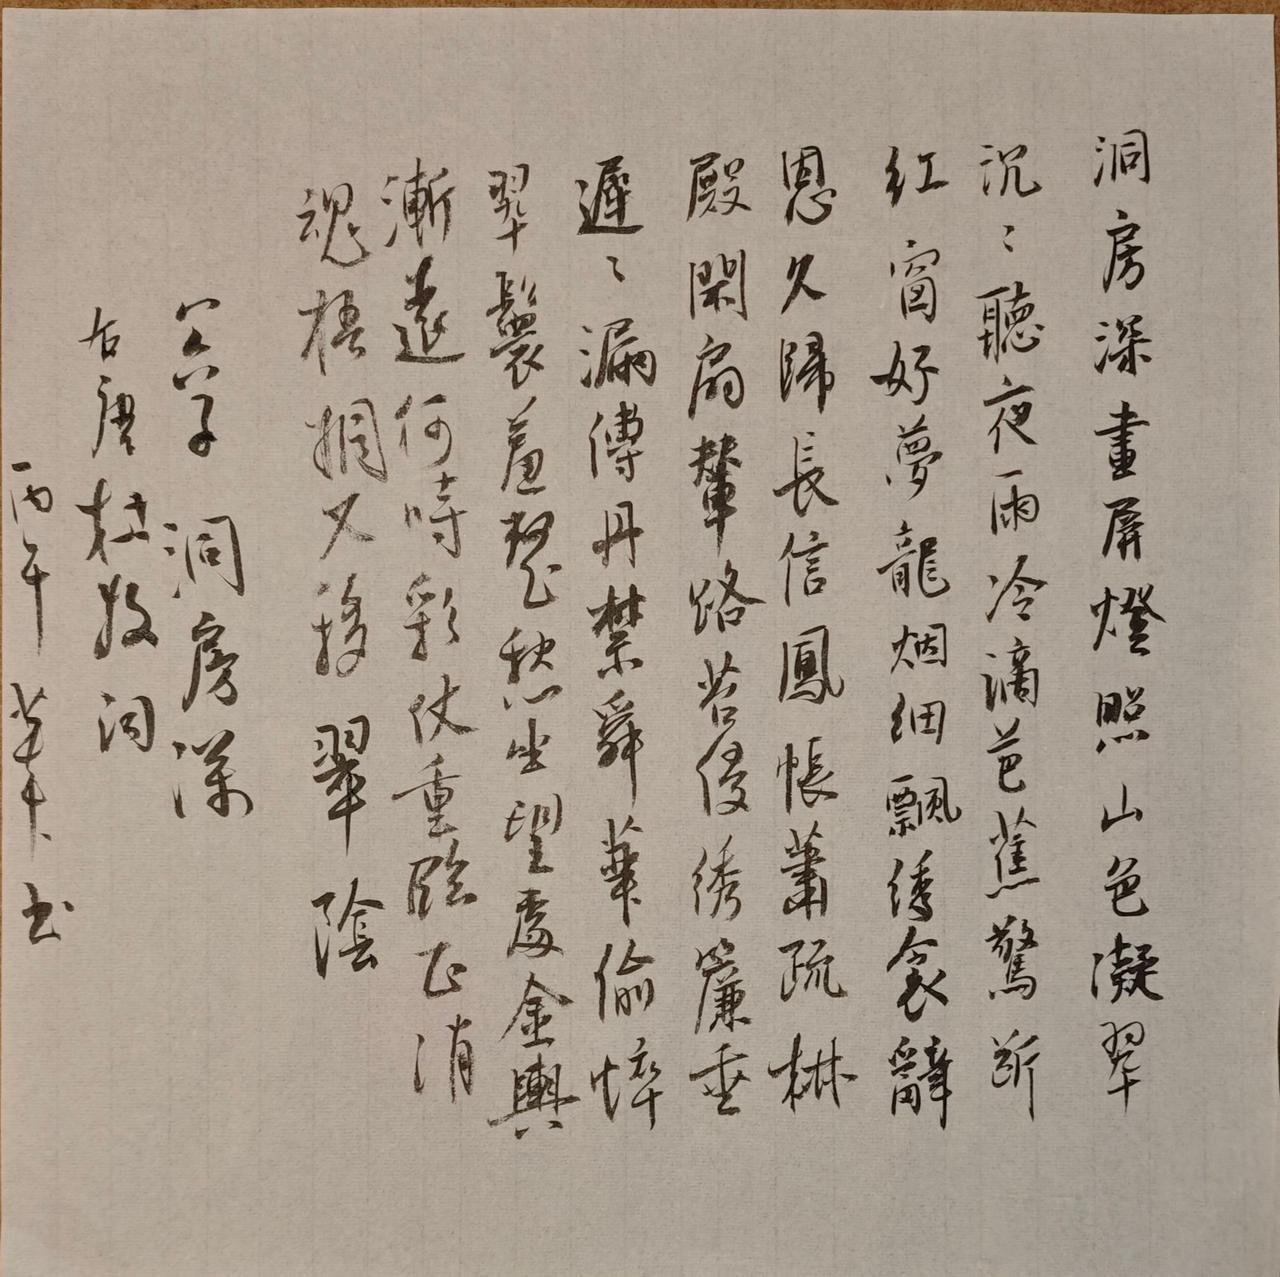 洞房深畫屏燈照山色凝翠
沉〻聽夜雨冷滴芭蕉驚斷
红窗好夢龍烟细飄绣衾辭
恩久歸長信鳳帳蕭疏椒
殿閑扃輦路苔侵绣簾垂
遲〻漏傳丹禁蕣華偷悴
翠鬟羞整愁坐望處金輿
漸遠何時彩仗重臨正消
魂梧桐又移翠陰
八六子 洞房深
右唐杜牧词
丙午 華 书